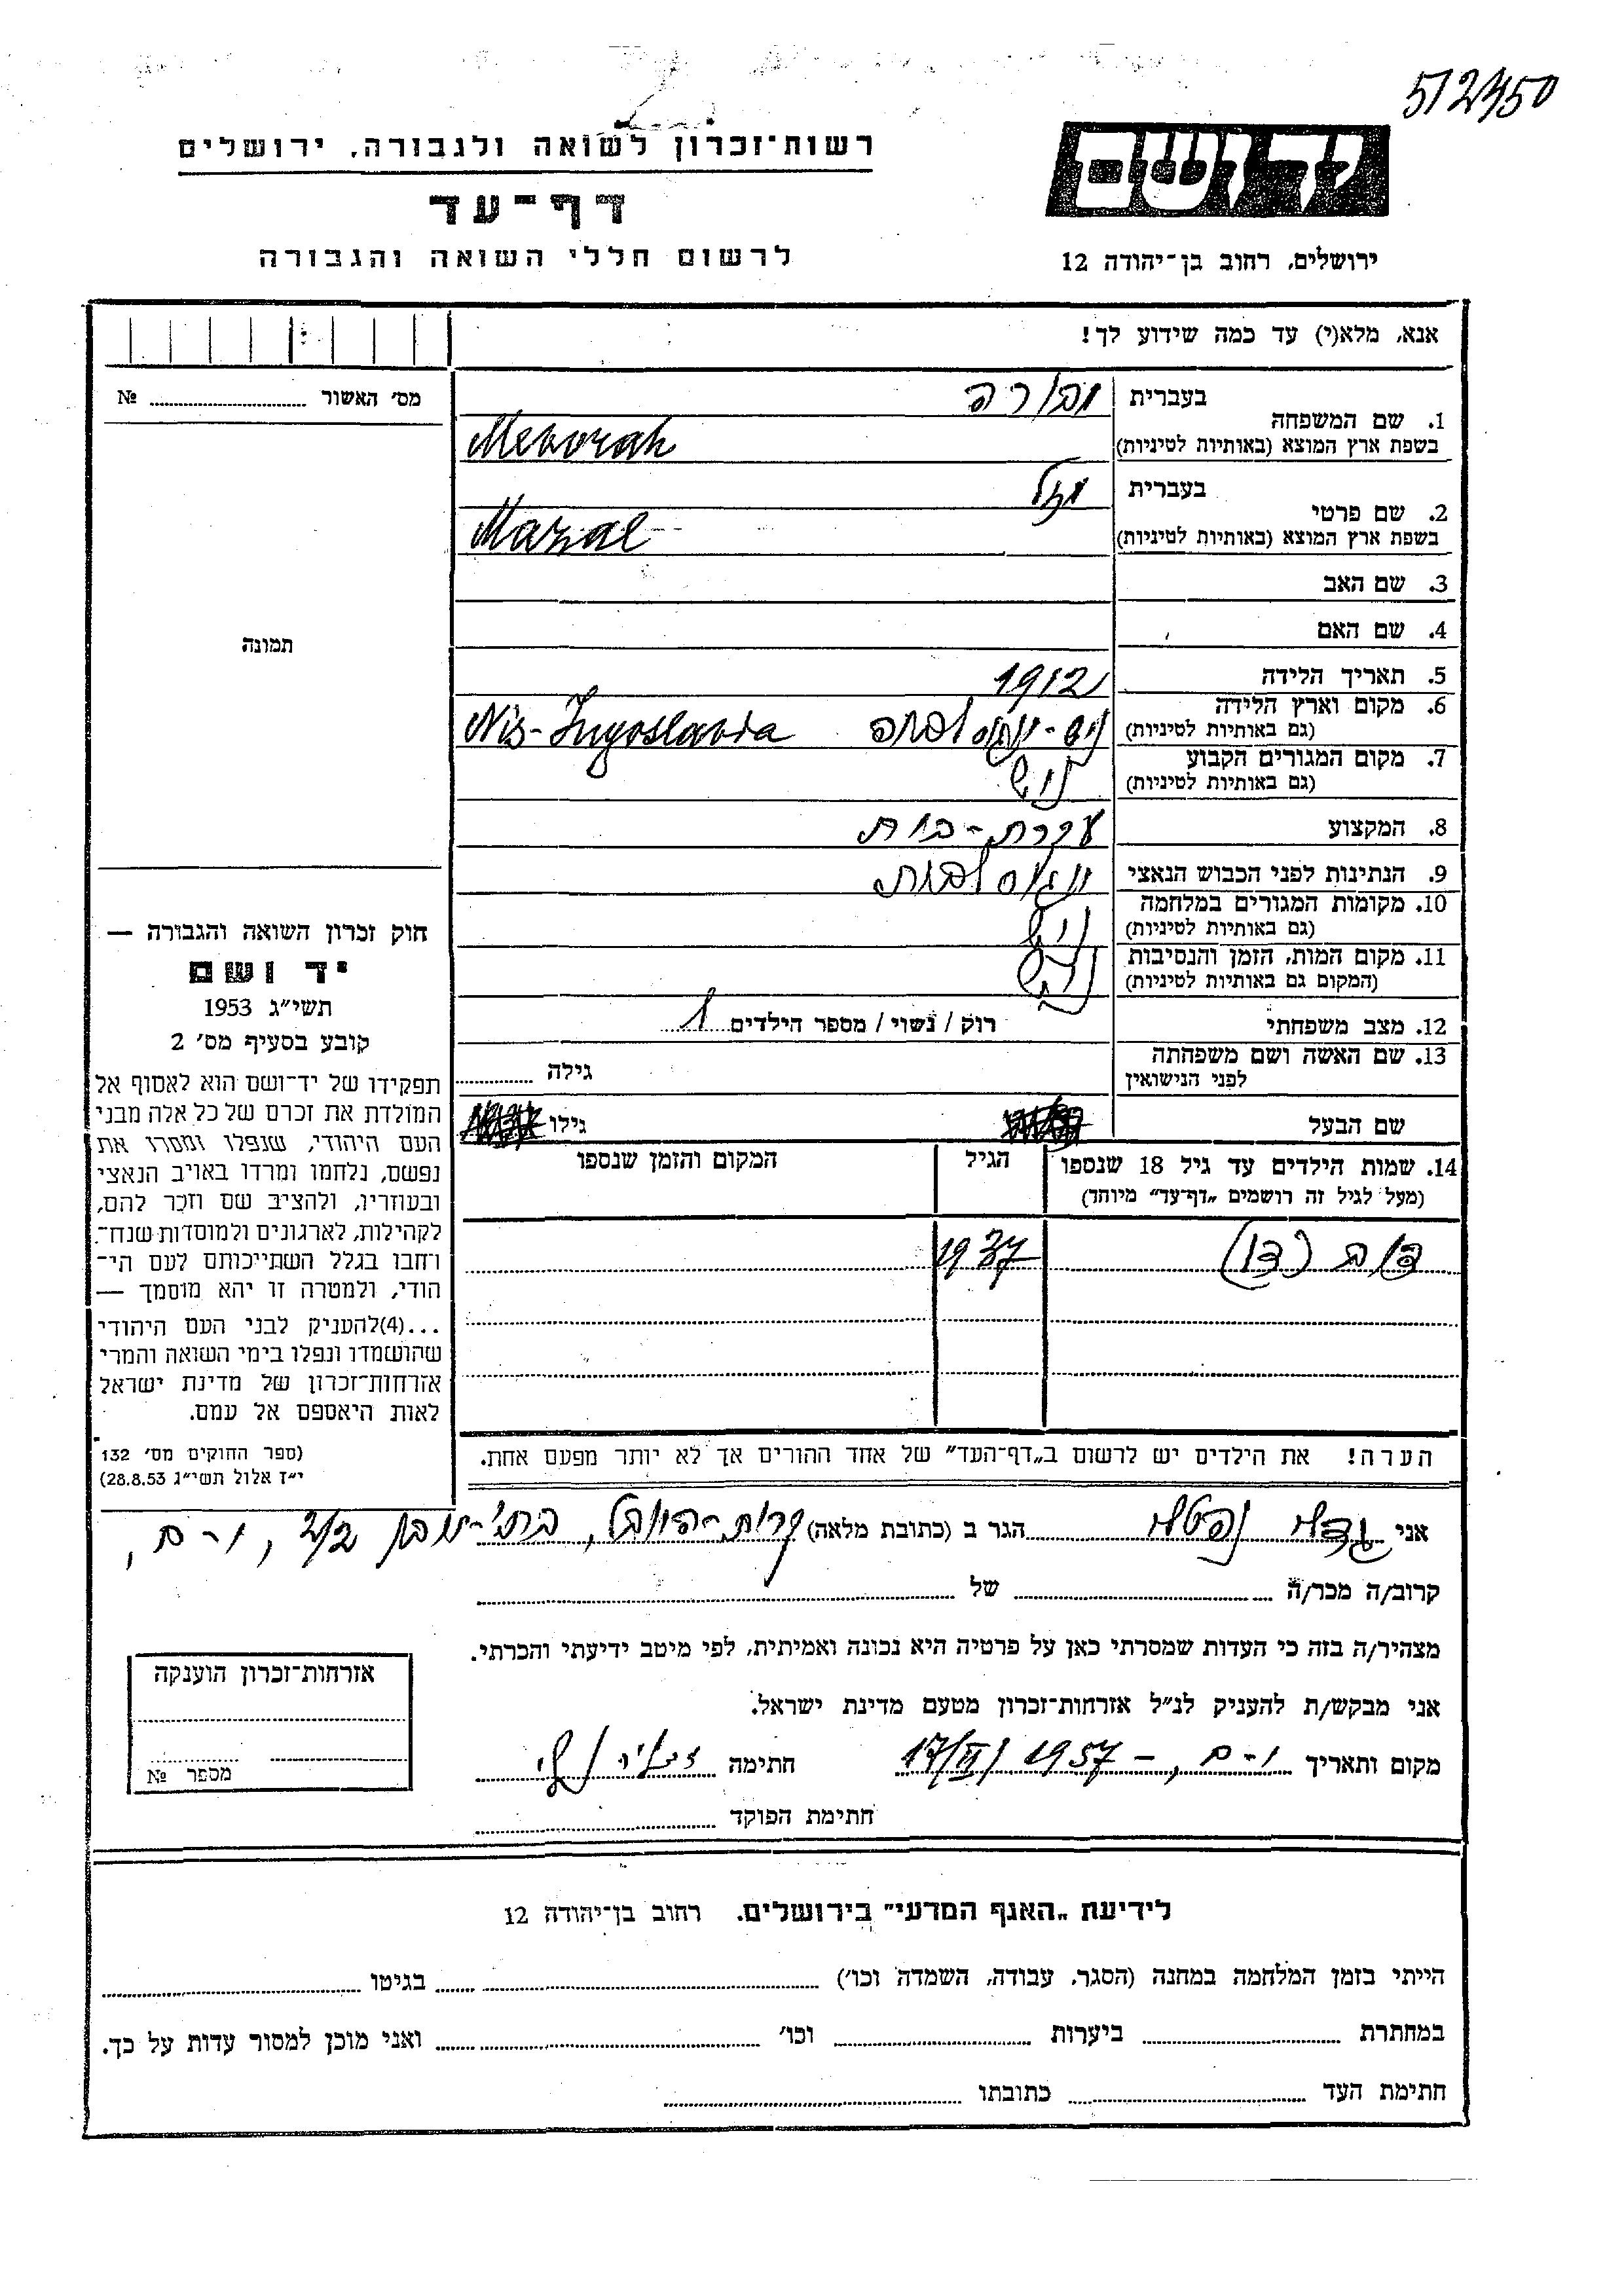 512/450
יד ושם
רשות־זכרון לשואה ולגבורה, ירושלים
דף־עד
לרשום חללי השואה והגבורה
ירושלים, רחוב בן־יהודה 12
אנא, מלא(י) עד כמה שידוע לך!
מס' האשור № ........
1. שם המשפחה
בעברית מבורה
בשפת ארץ המוצא (באותיות לטיניות) Mevorah
2. שם פרטי
בעברית מזל
בשפת ארץ המוצא (באותיות לטיניות) Mazal
3. שם האב
4. שם האם
5. תאריך הלידה 1912
6. מקום וארץ הלידה
(גם באותיות לטיניות) ניש - יוגוסלביה Nis - Jugoslavia
7. מקום המגורים הקבוע
(גם באותיות לטיניות) ניש
8. המקצוע עקרת-בית
9. הנתינות לפני הכבוש הנאצי יוגוסלבית
10. מקומות המגורים במלחמה
(גם באותיות לטיניות) ניש
11. מקום המות, הזמן והנסיבות
(המקום גם באותיות לטיניות) ניש
12. מצב משפחתי רוק / נשוי / מספר הילדים 1
13. שם האשה ושם משפחתה
לפני הנישואין גילה ........
שם הבעל גילו
14. שמות הילדים עד גיל 18 שנספו
(מעל לגיל זה רושמים „דף־עד" מיוחד)
הגיל
המקום והזמן שנספו
1937
הערה! את הילדים יש לרשום ב„דף־העד" של אחד ההורים אך לא יותר מפעם אחת.
תמונה
חוק זכרון השואה והגבורה —
יד ושם
תשי״ג 1953
קובע בסעיף מס' 2
תפקידו של יד־ושם הוא לאסוף אל
המולדת את זכרם של כל אלה מבני
העם היהודי, שנפלו ומסרו את
נפשם, נלחמו ומרדו באויב הנאצי
ובעוזריו, ולהציב שם וזכר להם,
לקהילות, לארגונים ולמוסדות שנח־
רחבו בגלל השתייכותם לעם הי־
הודי, ולמטרה זו יהא מוסמך —
...(4)להעניק לבני העם היהודי
שהושמדו ונפלו בימי השואה והמרי
אזרחות־זכרון של מדינת ישראל
לאות היאספם אל עמם.
(ספר החוקים מס' 132
י״ז אלול תשי״ג 28.8.53)
אני נפטלי הגר ב (כתובת מלאה) קרית-היובל, 2/2, י-ם,
קרוב/ה מכר/ה ........ של ........
מצהיר/ה בזה כי העדות שמסרתי כאן על פרטיה היא נכונה ואמיתית, לפי מיטב ידיעתי והכרתי.
אני מבקש/ת להעניק לנ״ל אזרחות־זכרון מטעם מדינת ישראל.
מקום ותאריך י-ם, - 17/VI 1957 חתימה
חתימת הפוקד ........
אזרחות־זכרון הוענקה
מספר №
לידיעת „האגף המדעי" בירושלים, רחוב בן־יהודה 12
הייתי בזמן המלחמה במחנה (הסגר, עבודה, השמדה וכו') ........ בגיטו ........
במחתרת ........ ביערות ........ וכו' ........ ואני מוכן למסור עדות על כך.
חתימת העד ........ כתובתו ........